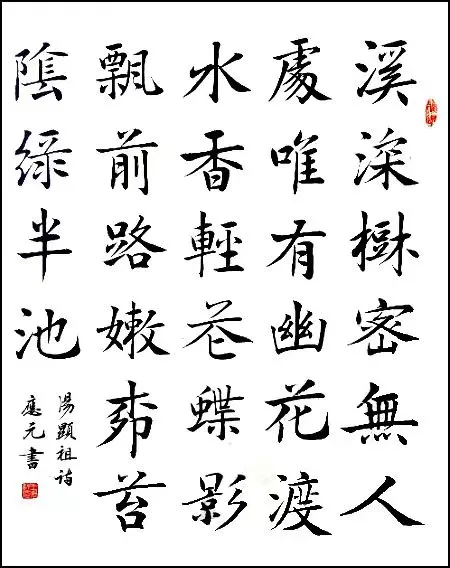 溪深樹密無人
處唯有幽花渡
水香輕花蝶影
飄前路嫩柳苔
陰綠半池
湯顯祖詩
應元書